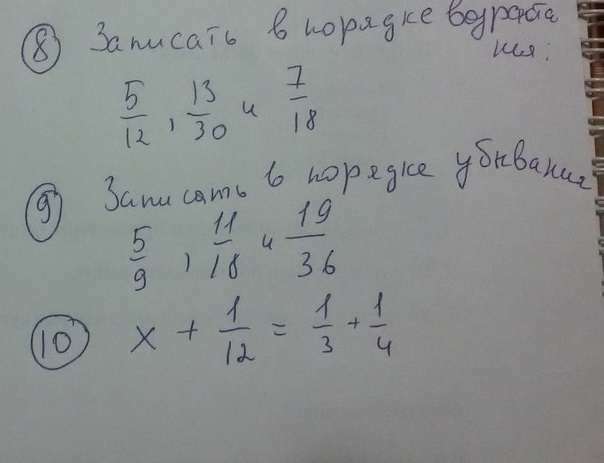 ⑧ Записать в порядке возраста
ния:
5/12, 13/30 и 7/18
⑨ Записать в порядке убывания
5/9, 11/18 и 19/36
⑩ x + 1/12 = 1/3 + 1/4